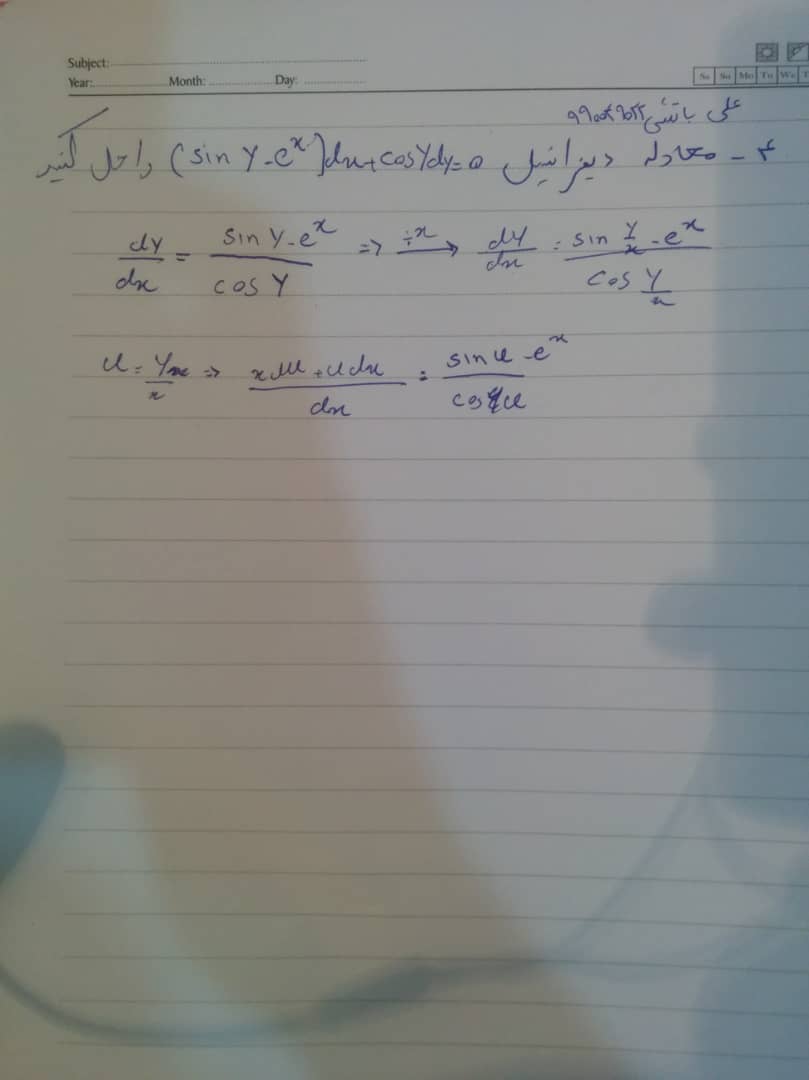 Subject:
Year: Month: Day:
Sa Su Mo Tu We T
علی
۴ - معادله دیفرانسیل (sin y - e^x)dx + cos y dy = 0 را حل کنید
dy/dx = (sin y - e^x)/(cos y) => ÷x → dy/dx = (sin y/x - e^x)/(cos y/x)
u = y/x => (x du + u dx)/dx = (sin u - e^x)/(cos u)